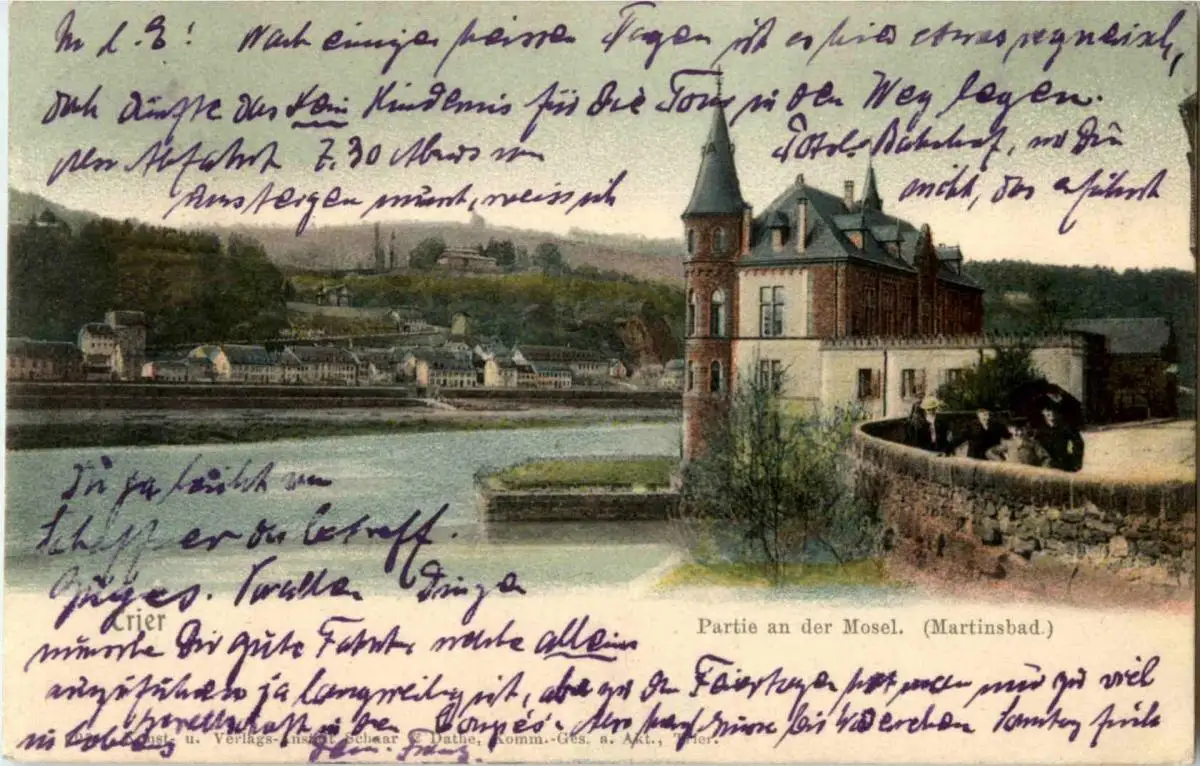 M. l. E! Nach einigen heissen Tagen ist es hier etwas regnerisch,
doch dürfte das kein Hindernis für die Tour in den Weg legen.
Abfahrt 7.30 Hotel Bahnhof, wo Du
aussteigen musst, weiss ich nicht, das erfährst
Du ja leicht von
Schaffner des betreff.
Zuges. Vor allen Dingen
Trier
Partie an der Mosel. (Martinsbad.)
wünsche Dir gute Fahrt, welche allein
auszuführen ja langweilig ist, aber an den Feiertagen hat man nur zu viel
Gesellschaft in den Coupés. Also auf Wiedersehen Samstag früh
in Coblenz
Kunst- u. Verlags-Anstalt Schaar & Dathe, Komm.-Ges. a. Akt., Trier.